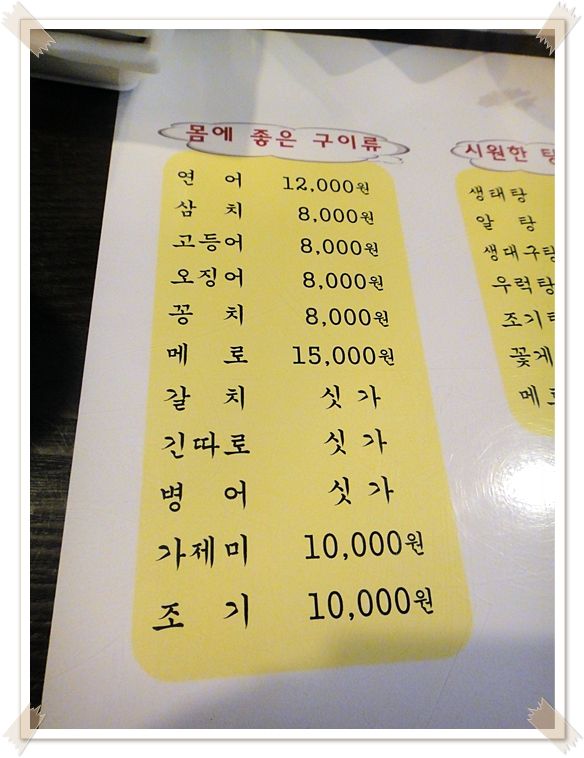 몸에 좋은 구이류
연 어 12,000원
삼 치 8,000원
고등어 8,000원
오징어 8,000원
꽁 치 8,000원
메 로 15,000원
갈 치 싯 가
긴따로 싯 가
병 어 싯 가
가제미 10,000원
조 기 10,000원
시원한 탕
생태탕
알 탕
생대구탕
우럭탕
조기
꽃게
메